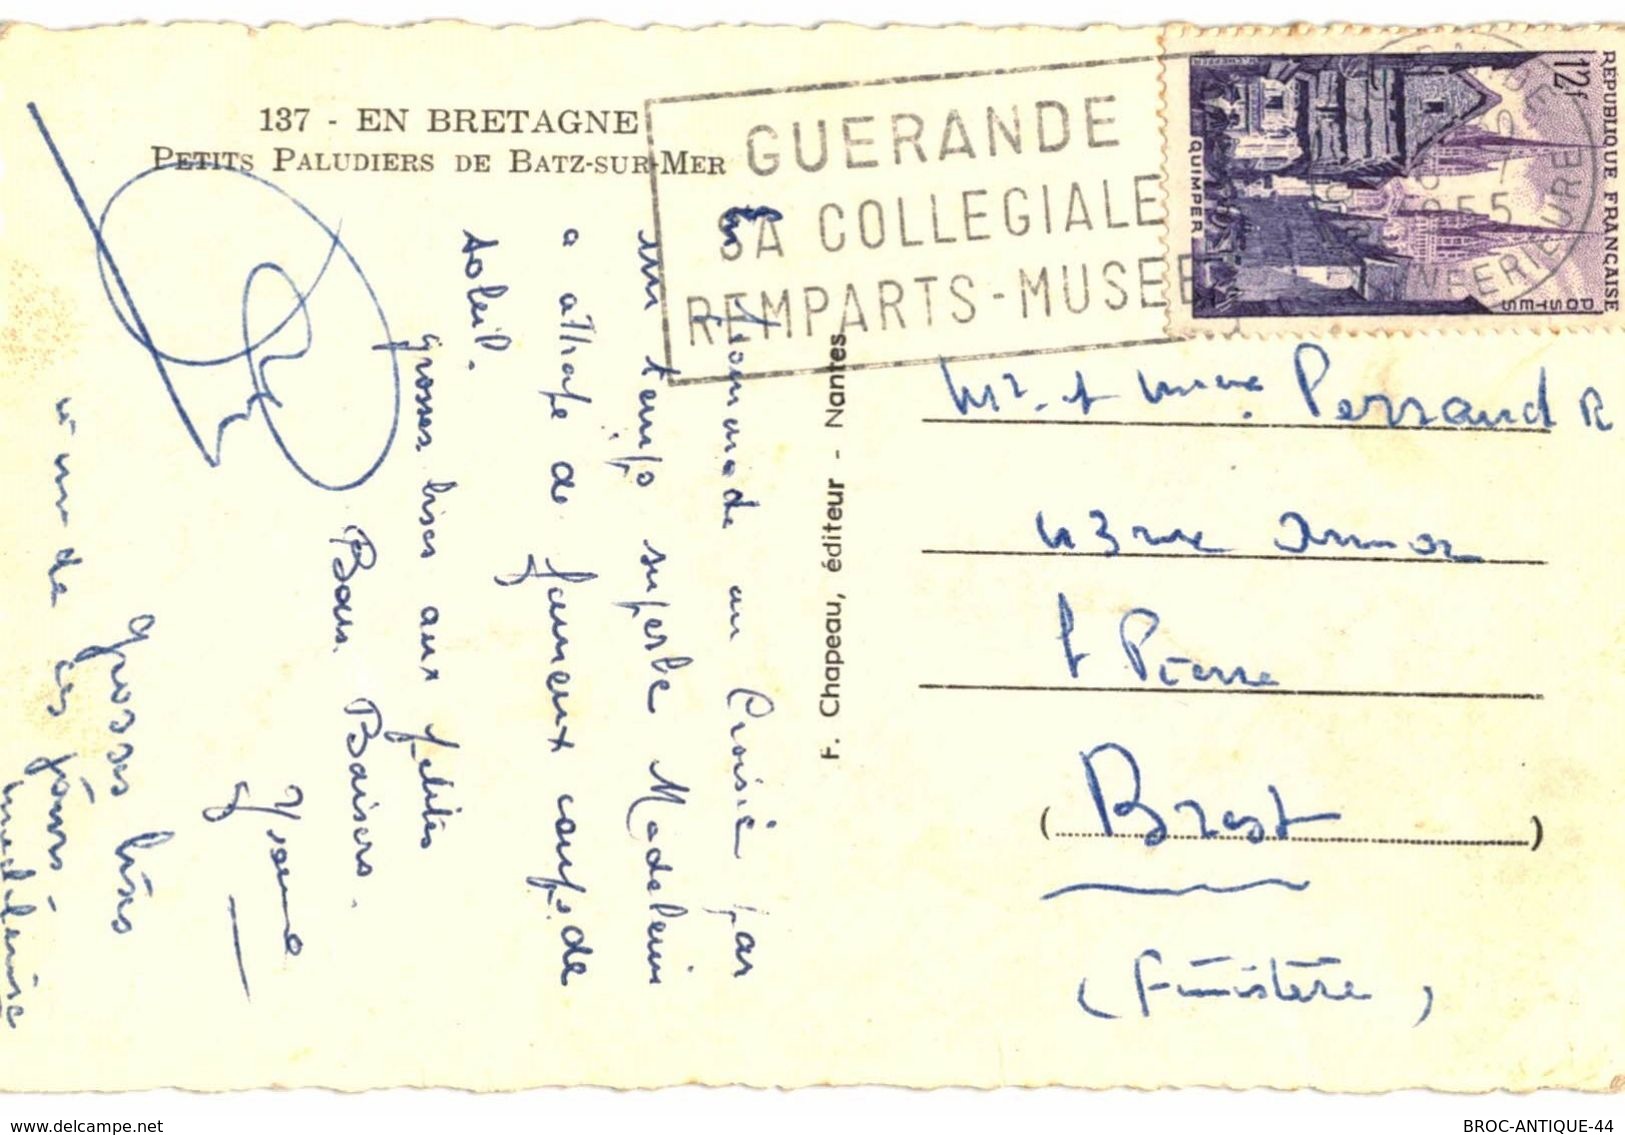 137 - EN BRETAGNE
PETITS PALUDIERS DE BATZ-SUR-MER
GUERANDE
SA COLLEGIALE
REMPARTS - MUSEE
RÉPUBLIQUE FRANÇAISE
12f
POSTES
QUIMPER
1955
INFERIEURE
En promenade au Croisic par
un temps superbe Madeleine
a attrapé de fameux coups de
soleil.
grosses bises aux petites
Bons Baisers.
Yvonne
grosses bises
de ces jours
Madeleine
F. Chapeau, éditeur - Nantes
Mr et Mme Perraud R
43 rue
St Pierre
(Brest)
(Finistère)
www.delcampe.net
BROC-ANTIQUE-44